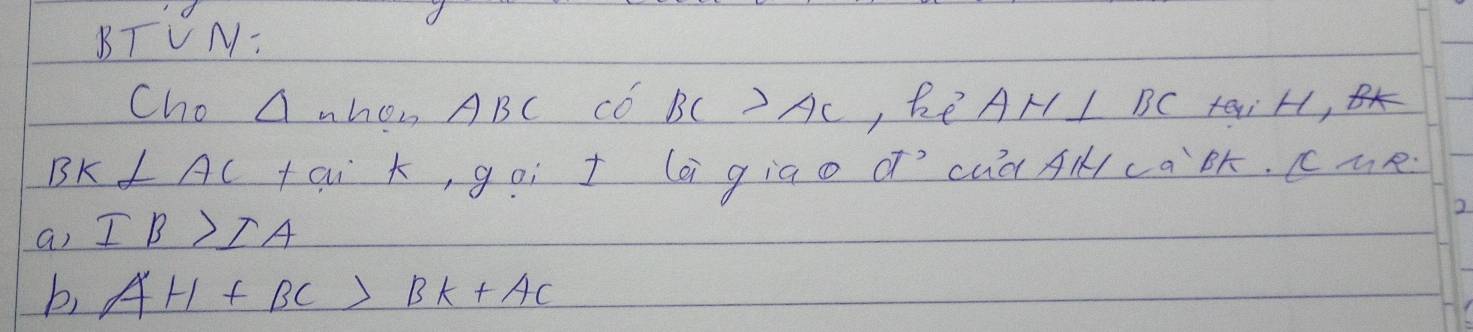 BTVN:
Cho Δ nhọn ABC có BC > AC, kẻ AH ⊥ BC tại H,
BK ⊥ AC tại K, gọi I là giao đ' của AH và BK. CMR:
a, IB > IA
b, AH + BC > BK + AC
2